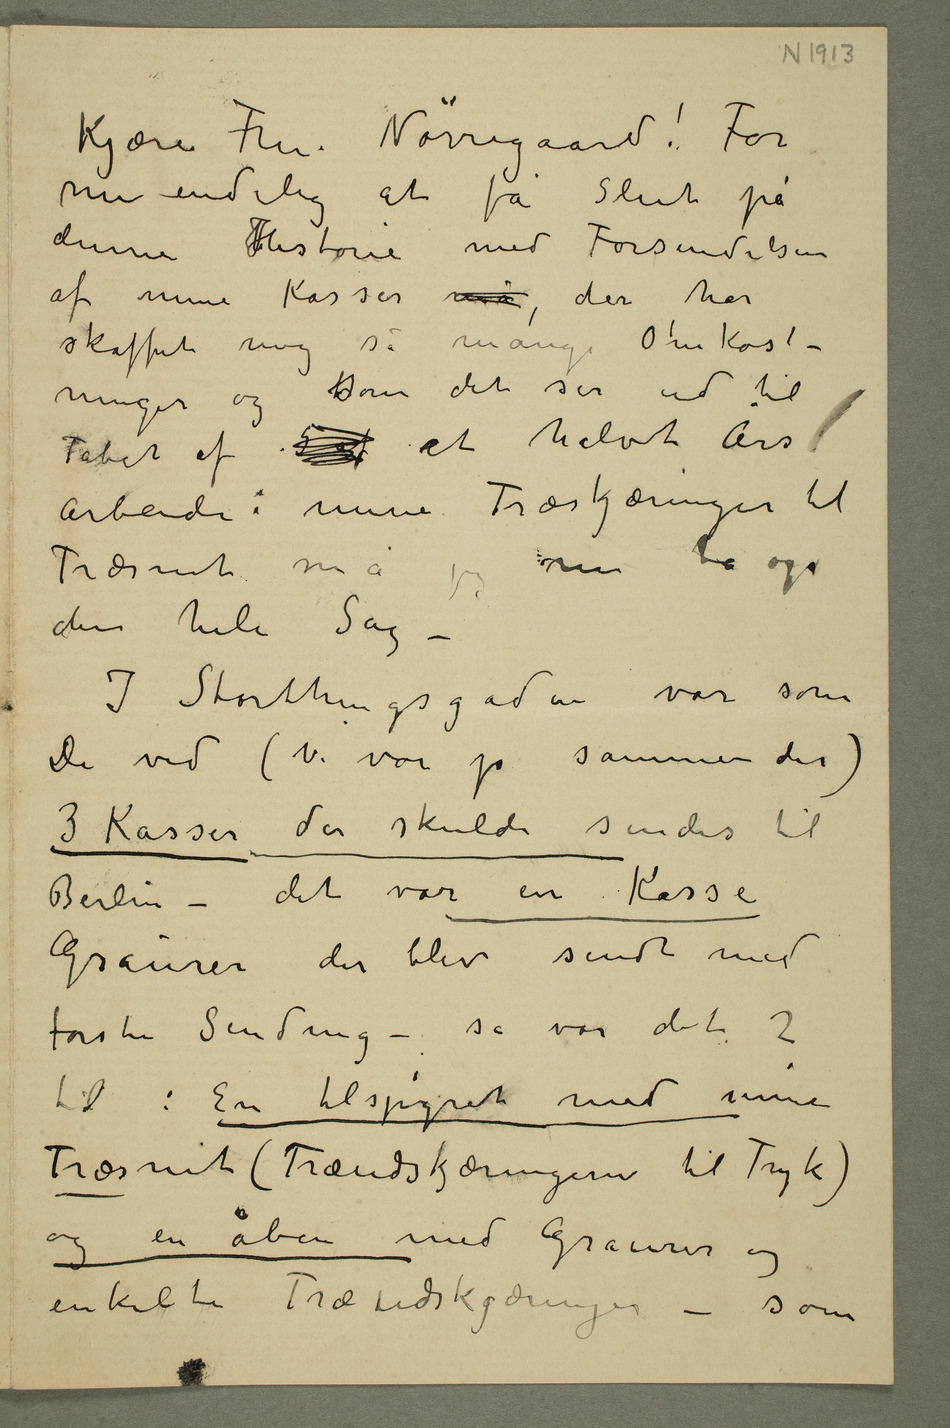 N 1913
Kjære Fru Nörregaard! For
nu endelig at få Slut på
denne Historie med Forsendelsen
af mine Kasser må, der har
skaffet mig så mange Omkost-
ninger og som det ser ud til
Tabet af et halvt Års
Arbeide i mine Træskjæringer til
Træsnit må jeg nu ta op
den hele Sag –
I Storthingsgaden var som
De ved (Vi var jo sammen der)
3 Kasser der skulde sendes til
Berlin – det var en Kasse
Gravurer der blev sendt med
første Sending – så var det 2
til : En tilspigret med mine
Træsnit (Træudskjæringerne til Tryk)
og en åben med Gravurer og
enkelte Træudskjæringer – som